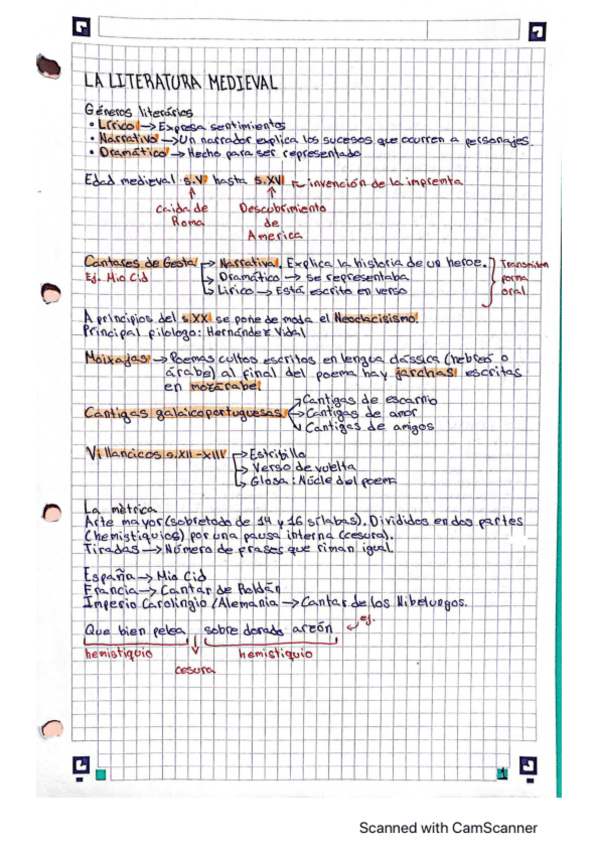 LA LITERATURA MEDIEVAL
Géneros literários
• Lírico → Expresa sentimientos
• Narrativo → Un narrador explica los sucesos que ocurren a personajes.
• Dramático → Hecho para ser representado
Edad medieval s.V hasta s.XV ← invención de la imprenta
caida de Roma
Descubrimiento de America
Cantares de Gesta → Narrativa. Explica la historia de un heroe.
Ej. Mio Cid → Dramático → se representaba
→ Lírico → Está escrito en verso
Transmiten forma oral.
A principios del s.XX se pone de moda el Neoclacisismo.
Principal filologo: Hernández Vidal
Moixajas → Poemas cultos escritos en lengua clássica (hebreo o
árabe) al final del poema hay jarchas escritas
en mozárabe.
Cantigas galaicoportuguesas → Cantigas de escarnio
→ Cantigas de amor
→ Cantigas de amigos
Villancicos s.XII-XIII → Estribillo
→ Verso de vuelta
→ Glosa: Núcle del poema
La mètrica
Arte mayor (sobretodo de 14 y 16 sílabas). Divididos en dos partes
(hemistiquios) por una pausa interna (cesura).
Tiradas → Número de frases que riman igual.
España → Mio Cid
Francia → Cantar de Roldán
Imperio Carolingio/Alemania → Cantar de los Nibelungos.
Que bien pelea sobre dorado arzón ← ej.
hemistiquio hemistiquio
cesura
1
Scanned with CamScanner